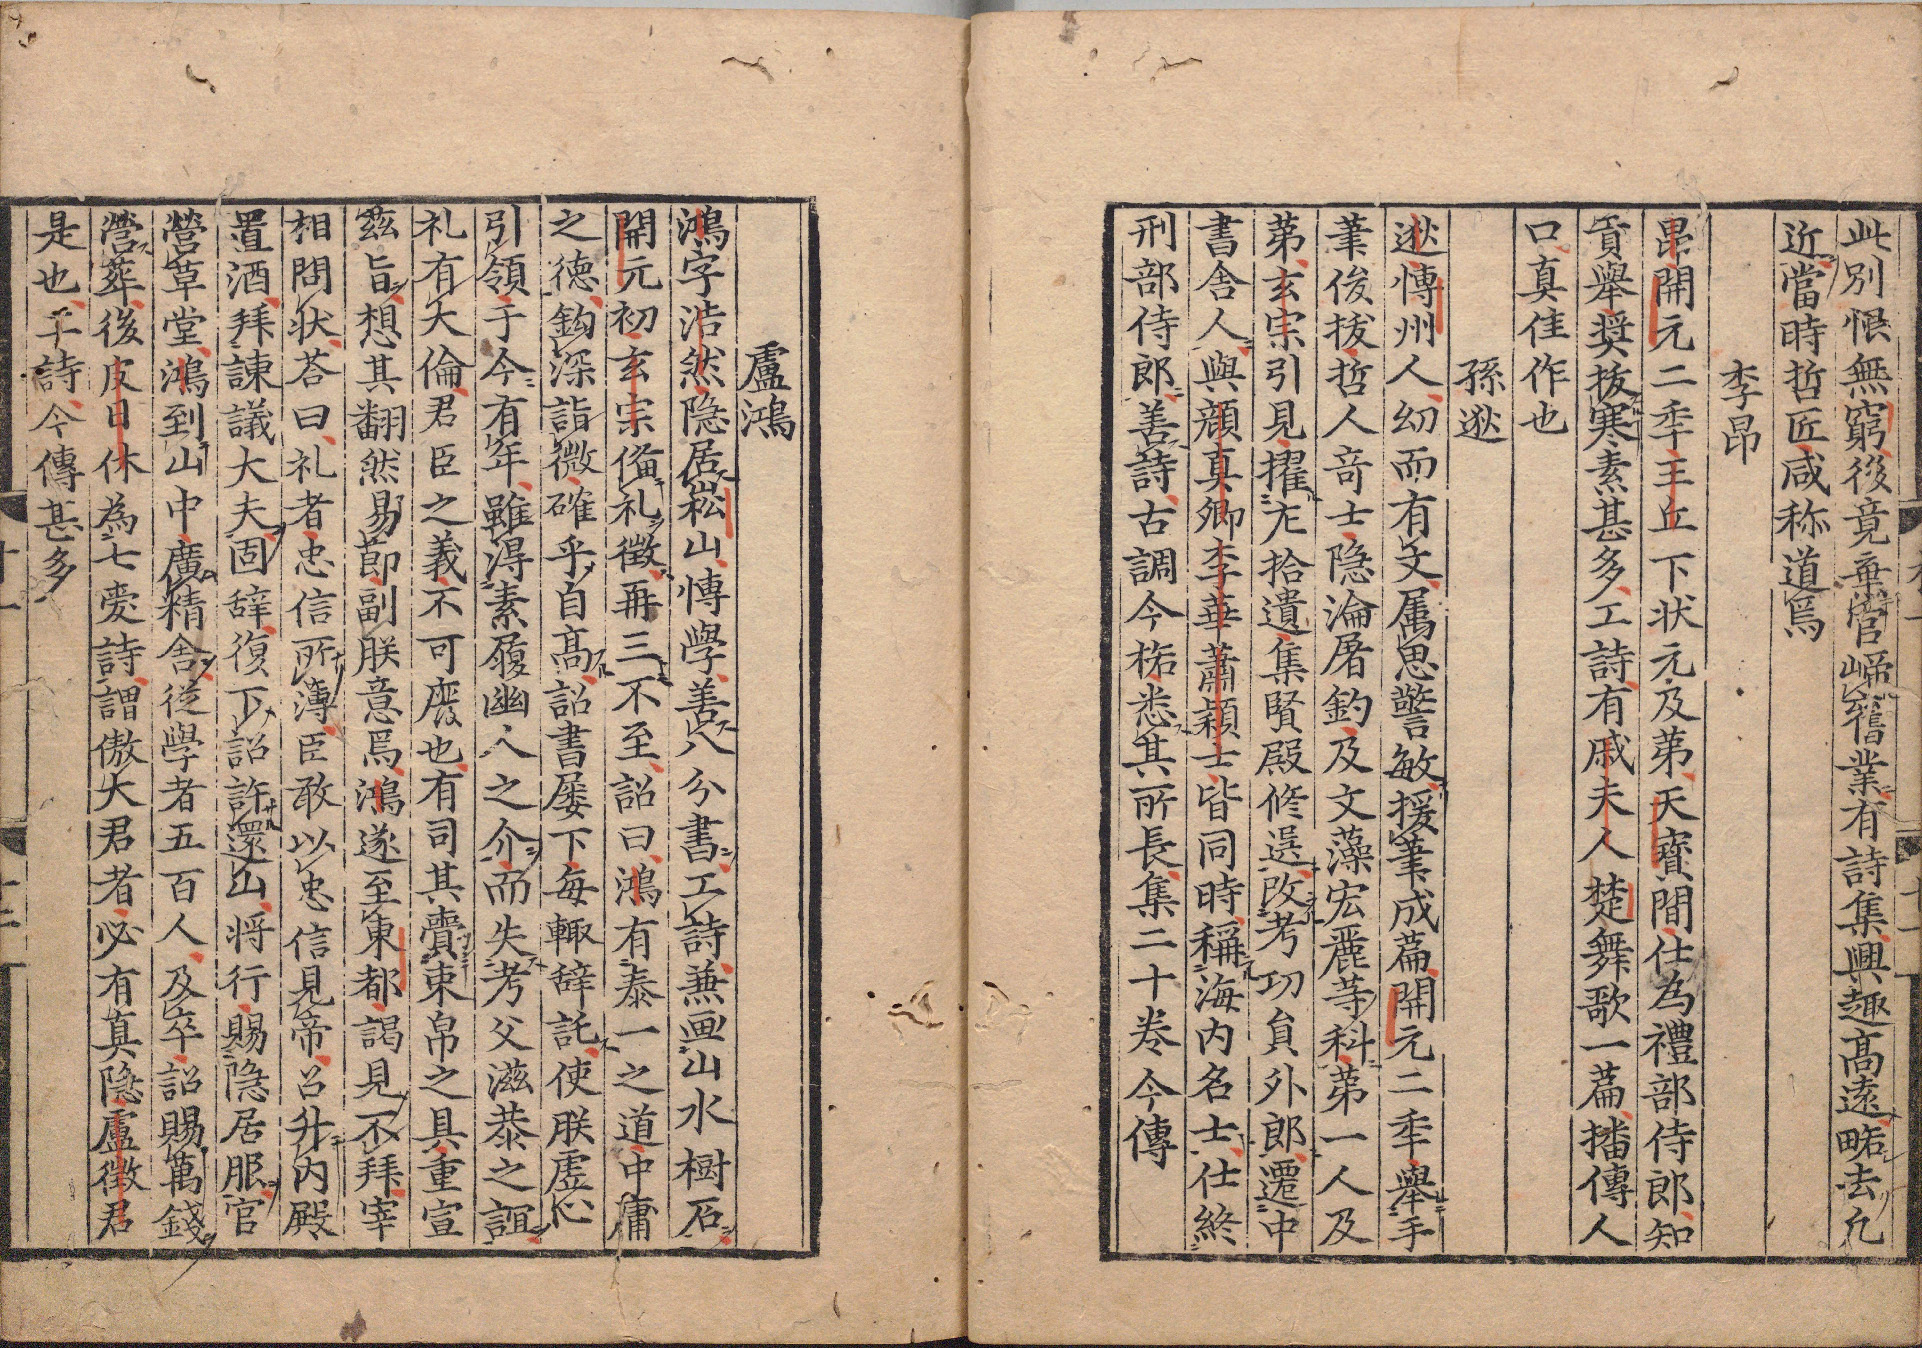 此別恨無窮後竟棄官歸舊業有詩集興趣高遠略去凢
近當時哲匠咸称道焉
李昂
昂開元二秊王丘下状元及第天寶間仕為禮部侍郎知
貢舉奨拔寒素甚多工詩有戚夫人楚舞歌一篇播傳人
口真佳作也
孫逖
逖博州人幼而有文属思警敏援筆成篇開元二秊舉手
筆俊拔哲人竒士隐淪屠釣及文藻宏麗等科第一人及
第玄宗引見擢左拾遺集賢殿修选改考功負外郎遷中
書舍人與顔真卿李華蕭頴士皆同時稱海内名士仕終
刑部侍郎善詩古調今格悉其所長集二十卷今傳
盧鴻
鴻字浩然隐居嵩山博學善八分書工詩兼画山水樹石
開元初玄宗備礼徵再三不至詔曰鴻有泰一之道中庸
之徳鈎深詣微確乎自高詔書屢下每輙辞託使朕虚心
引領于今有年雖得素履幽人之介而失考父滋恭之誼
礼有大倫君臣之義不可廃也有司其賷束帛之具重宣
兹旨想其翻然易節副朕意焉鴻遂至東都謁見不拜宰
相問状荅曰礼者忠信所薄臣敢以忠信見帝召升内殿
置酒拜諫議大夫固辞復下詔許還山将行賜隐居服官
營草堂鴻到山中廣精舍從學者五百人及卒詔賜萬錢
營葬後皮日休為七愛詩謂傲大君者必有真隐盧徵君
是也工詩今傳甚多
十一